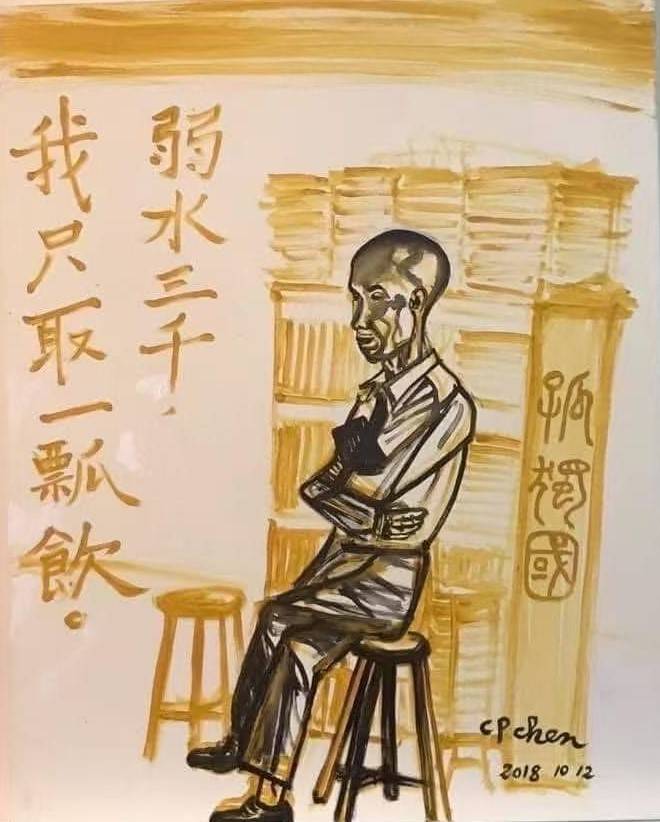 弱水三千，
我只取一瓢飲。
孤獨國
CPchen
2018 10 12